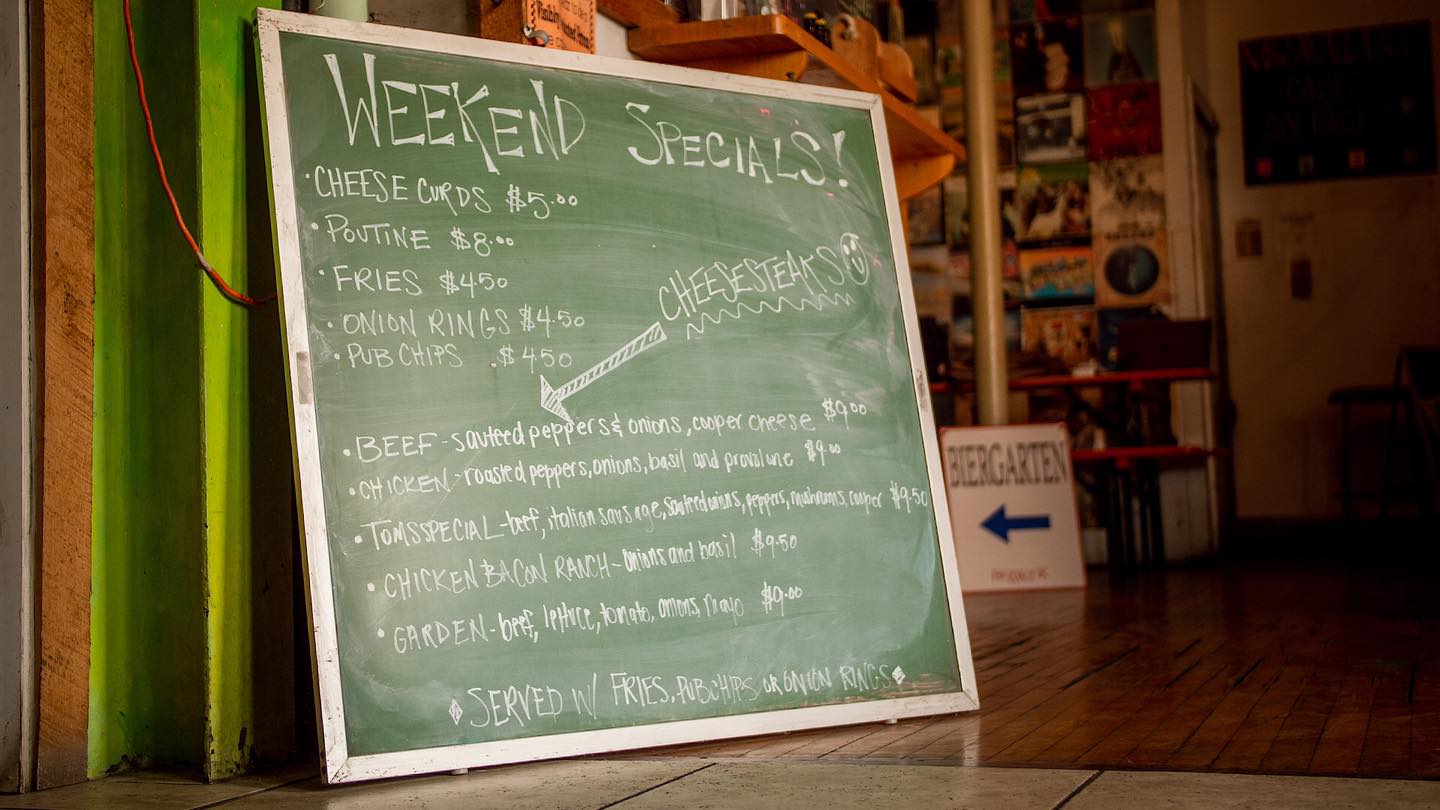 WEEKEND SPECIALS!
• CHEESE CURDS $5.00
• POUTINE $8.00
• FRIES $4.50
• ONION RINGS $4.50
• PUB CHIPS $4.50
CHEESESTEAKS
• BEEF - sauteed peppers & onions, cooper cheese $9.00
• CHICKEN - roasted peppers, onions, basil and provalone $9.00
• TOMSSPECIAL - beef, italian sausage, sauteed onions, peppers, mushrooms, cooper $9.50
• CHICKEN BACON RANCH - onions and basil $9.50
• GARDEN - beef, lettuce, tomato, onions, mayo $9.00
SERVED W/ FRIES, PUB CHIPS OR ONION RINGS
BIERGARTEN